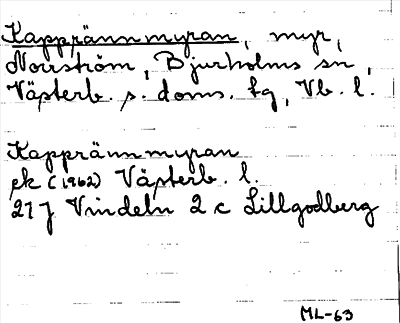 Kapprännmyran, myr,
Norrström, Bjurholms sn,
Västerb. s. doms. tg, Vb. l.
Kapprännmyran
ek (1962) Västerb. l.
21 J Vindeln 2 c Lillgodberg
ML-63